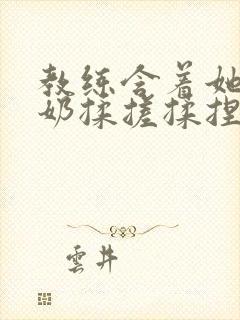 教练含着她
奶揉搓揉捏
雲井